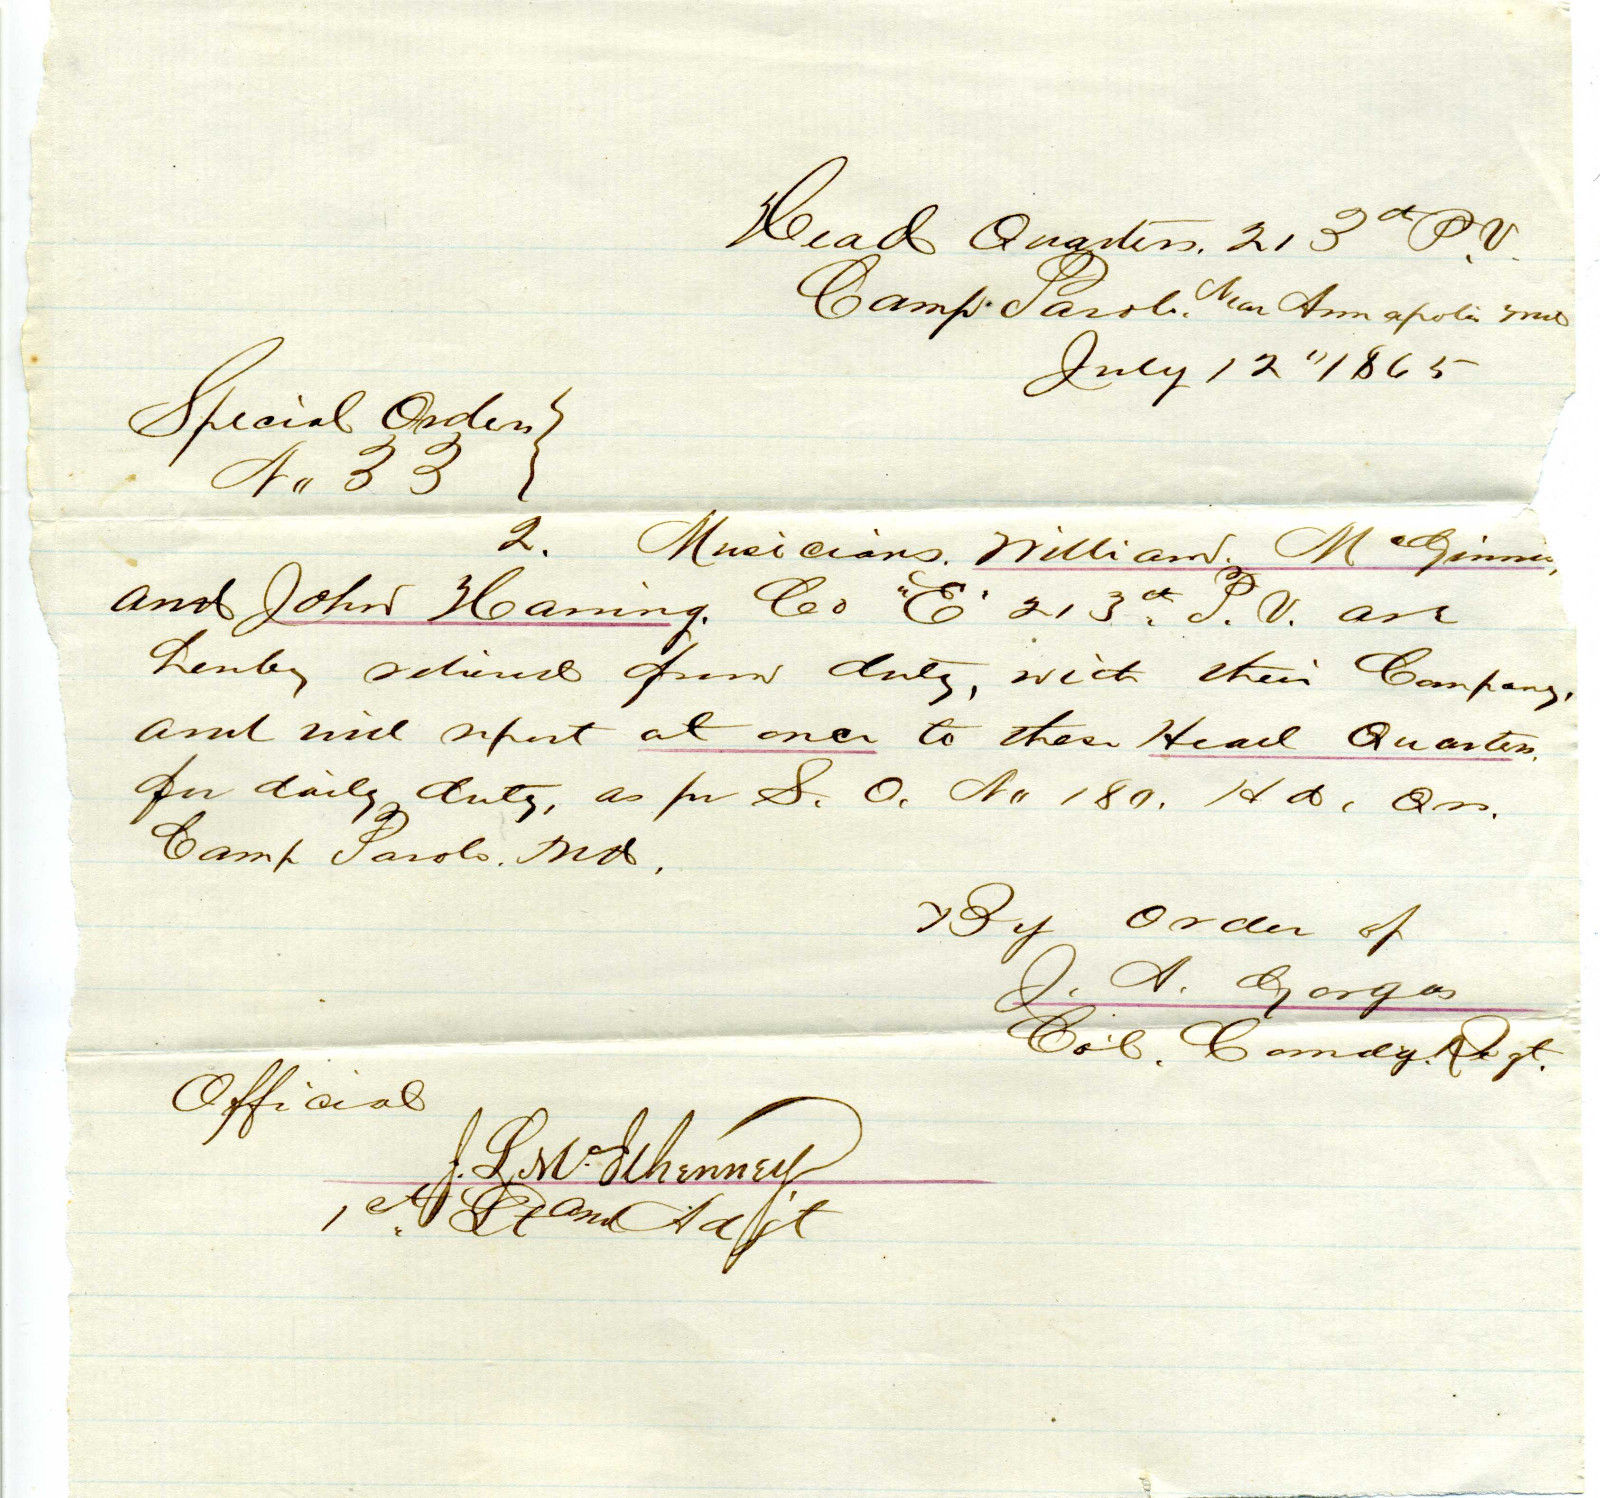 Head Quarters. 213th P.V.
Camp Parole. Near Annapolis Md
July 12" 1865
Special Orders }
No 33 }
2. Musicians. William. McGinnis,
and John Haning. Co "E" 213th. P. V. are
hereby relieved from duty, with their Company,
and will report at once to these Head Quarters.
for daily duty, as per S. O. No 180. Hd. Qrs.
Camp Parole. Md.
By order of
J. A. Gorgas
Col. Comdg. Regt.
Official
J. L. McIlhenney
1st. Lt and Adjt